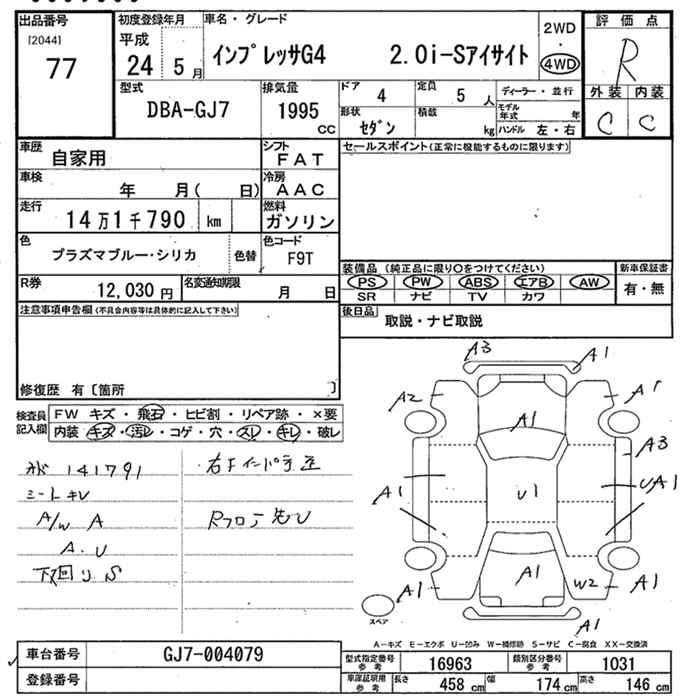 出品番号
[2044]
77
初度登録年月
平成
24 5月
車名・グレード
インプレッサG4 2.0i-Sアイサイト
2WD
・
4WD
評価点
R
外装 内装
C C
型式
DBA-GJ7
排気量
1995
cc
ドア 4
定員 5人
形状 セダン
積載 kg
ディーラー・並行
モデル年式 年
ハンドル 左・右
車歴 自家用
シフト FAT
車検 年 月( 日)
冷房 AAC
走行 14万1千790 km
燃料 ガソリン
色 プラズマブルー・シリカ 色替
色コード F9T
R券 12,030円
名変通知期限 月 日
セールスポイント(正常に機能するものに限ります)
装備品(純正品に限り〇をつけてください)
PS PW ABS エアB AW
SR ナビ TV カワ
新車保証書
有・無
後日品 取説・ナビ取説
注意事項申告欄(不具合内容等は具体的に記入して下さい)
修復歴 有〔箇所 〕
検査員記入欄
FW キズ・飛石・ヒビ割・リペア跡・×要
内装 キズ・汚レ・コゲ・穴・スレ・キレ・破レ
141791
A/W A
A.U
下回りS
A3
A1
A2
A1
A1
A3
A1
U1
UA1
A1
A1
W2
A1
A1
スペア
A-キズ E-エクボ U-凹み W-補修跡 S-サビ C-腐食 XX-交換済
車台番号 GJ7-004079
登録番号
型式指定番号参考 16963
類別区分番号参考 1031
車庫証明用参考 長さ 458cm 幅 174cm 高さ 146cm